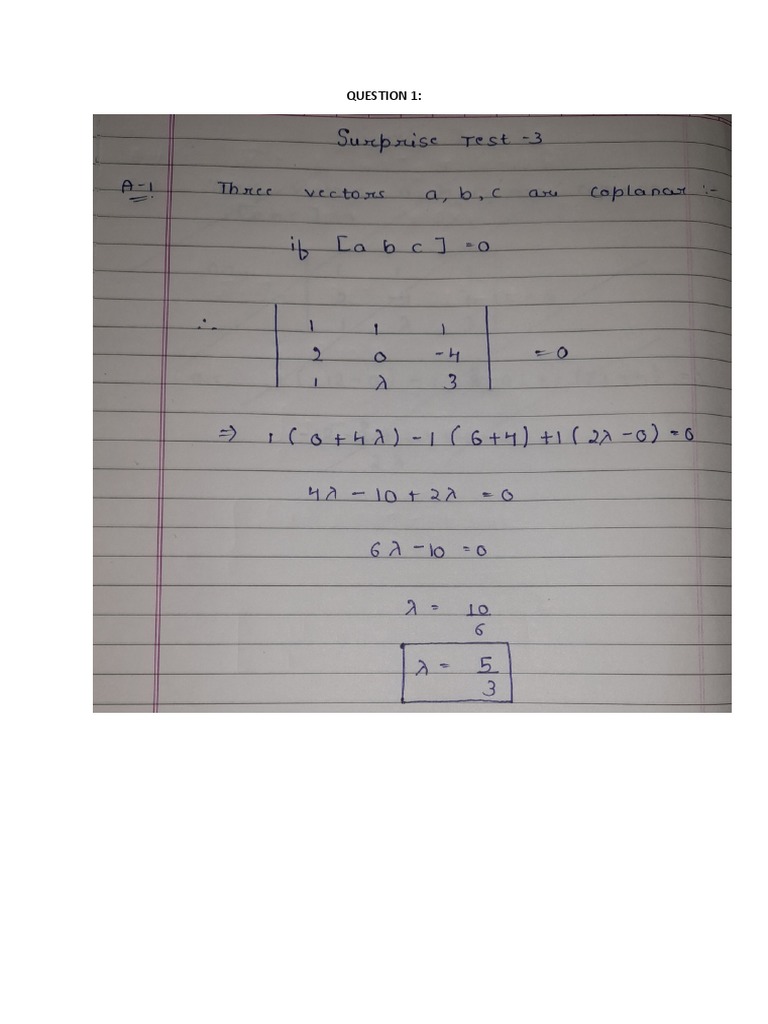 QUESTION 1:
Surprise Test -3
A-1 Three vectors a, b, c are coplanar :-
if [a b c] = 0
∴ | 1 1 1 |
| 2 0 -4 | = 0
| 1 λ 3 |
⇒ 1 ( 0 + 4λ ) - 1 ( 6 + 4 ) + 1 ( 2λ - 0 ) = 0
4λ - 10 + 2λ = 0
6λ - 10 = 0
λ = 10
6
λ = 5
3